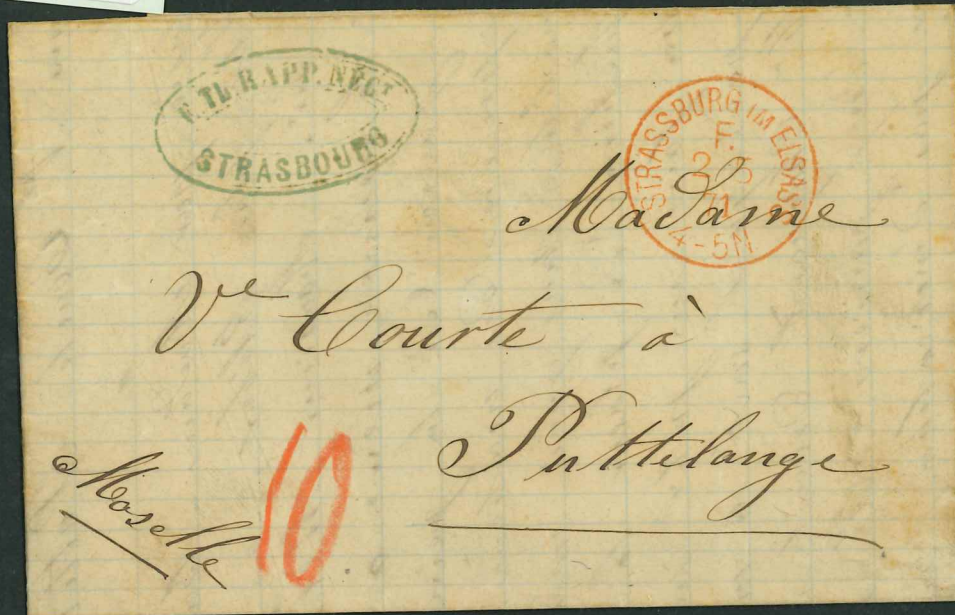 TH. RAPP. NÉGT
STRASBOURG
STRASSBURG IM ELSASS
F.
2 5
71
4-5N
Madame
Ve Courte à
Puttelange
Moselle
10